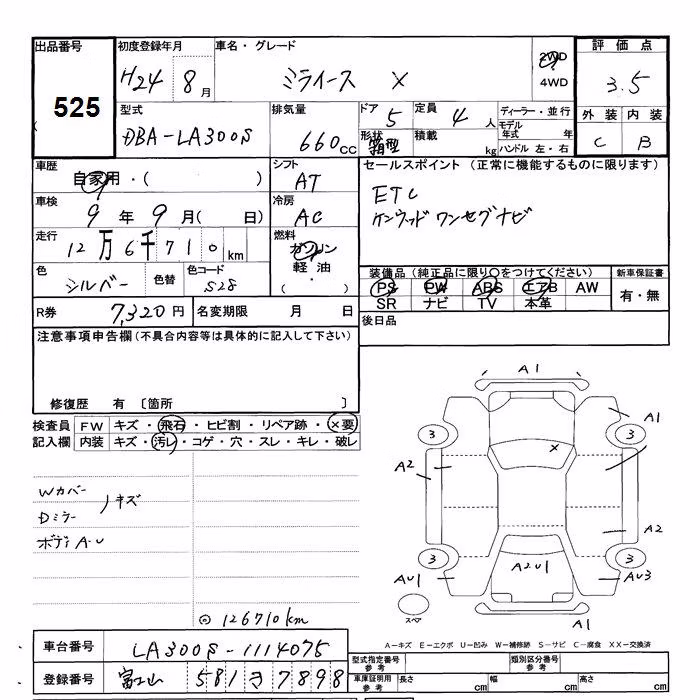 出品番号 初度登録年月 車名・グレード 評価点
525 H24 8月 ミライース X 2WD 4WD 3.5
型式 排気量 ドア 定員 ディーラー・並行 外装 内装
DBA-LA300S 660cc 5 4人 モデル年式 年 C B
形状 箱型 積載 kg ハンドル 左・右
車歴 シフト セールスポイント (正常に機能するものに限ります)
自家用・( ) AT
ETC
車検 冷房
9年9月( 日) AC ケンウッド ワンセグナビ
走行 燃料
12万6千710km ガソリン
軽油
( ・ )
色 色替 色コード 装備品(純正品に限り○をつけてください) 新車保証書
シルバー S28 PS PW ABS エアB AW 有・無
SR ナビ TV 本革
R券 7,320円 名変期限 月 日 後日品
注意事項申告欄(不具合内容等は具体的に記入して下さい)
修復歴 有 〔箇所 〕
検査員 FW キズ・飛石・ヒビ割・リペア跡・×要
記入欄 内装 キズ・汚レ・コゲ・穴・スレ・キレ・破レ
Wカバー
Dミラー ノキズ
ボディA-U
◎126710km
A1
A1
3 3
A2 X
A2
3 3
AU1 A2U1 AU3
スペア A1
A-キズ E-エクボ U-凹み W-補修跡 S-サビ C-腐食 XX-交換済
車台番号 LA300S-1114075 型式指定番号 参考 類別区分番号 参考
登録番号 富山 581 7898 車庫証明用 参考 長さ cm 幅 cm 高さ cm